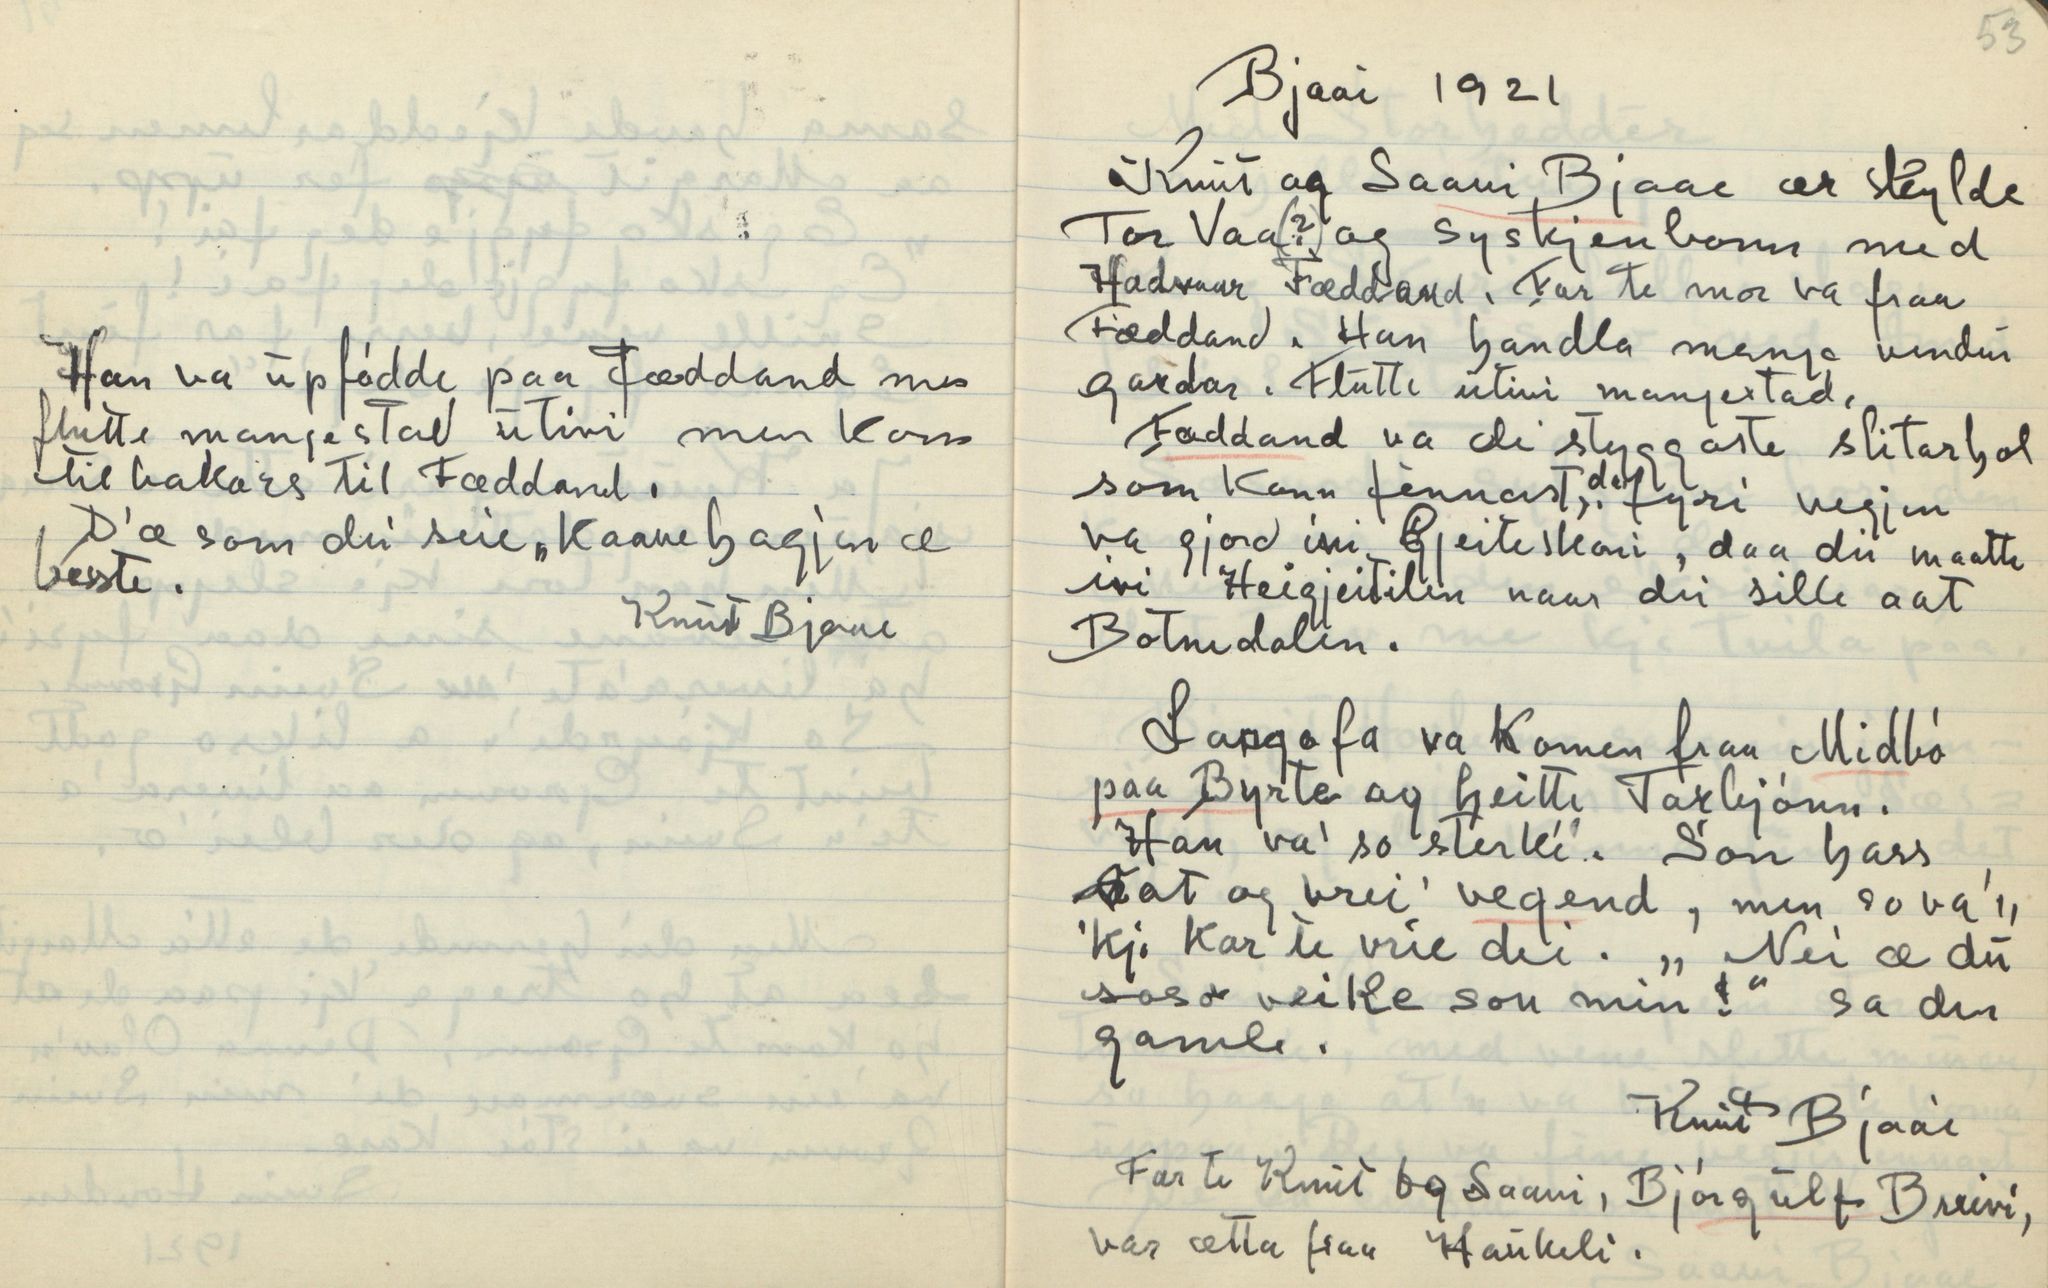 Han va üpfødde paa Fæddand men
flutte mangestad ütivi men kom
tilbakars til Fæddand.
D'æ som dü seie „Kaanehagjen æ
besste.
Knüt Bjaae
53
Bjaai 1921
Knüt og Saavi Bjaae ær skylde
Tor Vaa(?) og syskjenbonn med
Hadvaar Fæddand. Far te mor va fraa
Fæddand. Han handla mange vendur
gardar. Flutte ütivi mangestad.
Fæddand va di styggaste slitarhol
som kann fennast, der fyri vegjen
va gjord ivi Gjeiteskori, daa dü maatte
ivi Heigjeitilen naar dü sille aat
Botnedalen.
Langofa va komen fraa Midbó
paa Byrte og heitte Tarbjónn.
Han va' so sterké'. Son hass
tat og vrei' vegend, men so va'„
'kji kar te vrie dei. „Nei æ dü
soso veike son min!" sa den
gamle.
Knüt Bjaai
Far te Knüt og Saavi, Bjórgülf Breivi,
var ætta fraa Haükeli.